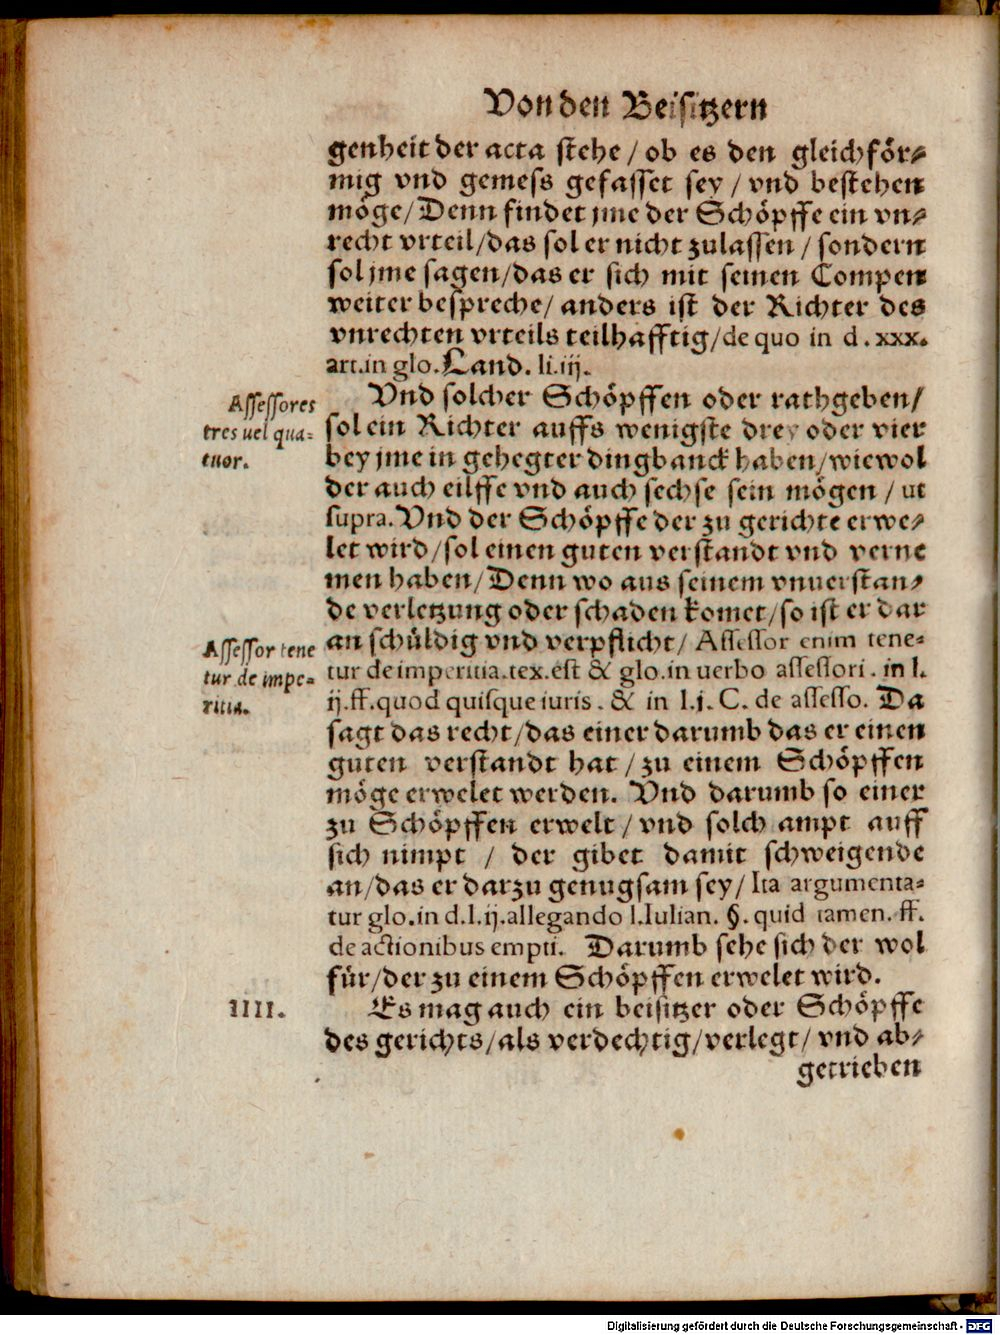 Von den Beisitzern
genheit der acta stehe / ob es den gleichför⸗
mig vnd gemess gefasset sey / vnd bestehen
möge / Denn findet jme der Schöpffe ein vn⸗
recht vrteil / das sol er nicht zulassen / sondern
sol jme sagen / das er sich mit seinen Compen
weiter bespreche / anders ist der Richter des
vnrechten vrteils teilhafftig / de quo in d. xxx.
art. in glo. Land. li. iij.
Vnd solcher Schöpffen oder rathgeben /
Assessores
tres uel qua-
tuor.
sol ein Richter auffs wenigste drey oder vier
bey jme in gehegter dingbanck haben / wiewol
der auch eilffe vnd auch sechse sein mögen / ut
supra. Vnd der Schöpffe der zu gerichte erwe⸗
let wird / sol einen guten verstandt vnd verne
men haben / Denn wo aus seinem vnuerstan⸗
de verletzung oder schaden komet / so ist er dar
an schüldig vnd verpflicht / Assessor enim tene-
Assessor tene
tur de impe-
ritia.
tur de imperitia. tex. est & glo. in uerbo assessori. in l.
ij. ff. quod quisque iuris. & in l. j. C. de assesso. Da
sagt das recht / das einer darumb das er einen
guten verstandt hat / zu einem Schöpffen
möge erwelet werden. Vnd darumb so einer
zu Schöpffen erwelt / vnd solch ampt auff
sich nimpt / der gibet damit schweigende
an / das er darzu genugsam sey / Ita argumenta-
tur glo. in d. l. ij. allegando l. Iulian. §. quid tamen. ff.
de actionibus empti. Darumb sehe sich der wol
für / der zu einem Schöpffen erwelet wird.
IIII.
Es mag auch ein beisitzer oder Schöpffe
des gerichts / als verdechtig / verlegt / vnd ab⸗
getrieben
Digitalisierung gefördert durch die Deutsche Forschungsgemeinschaft - DFG